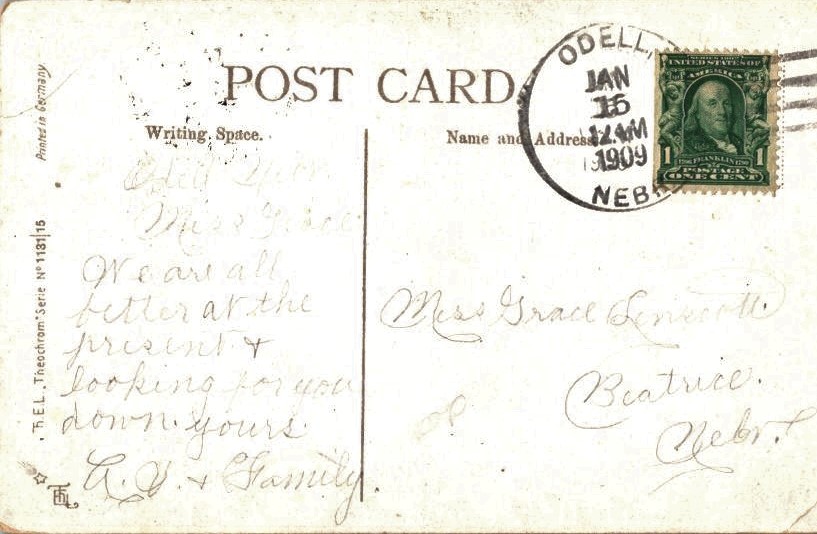 POST CARD
Writing Space.
Name and Address
Printed in Germany.
T.H.E.L. Theochrom Serie Nº 1131|15
ODELL,
JAN
16
1909
NEBR
SERIES 1902
UNITED STATES OF
AMERICA
1706 FRANKLIN 1790
1 1
POSTAGE
ONE CENT
Odell Nebr
Miss Grace
We are all
better at the
present &
looking for you
down. yours
& Family
Miss Grace Linscott
Beatrice.
Nebr.